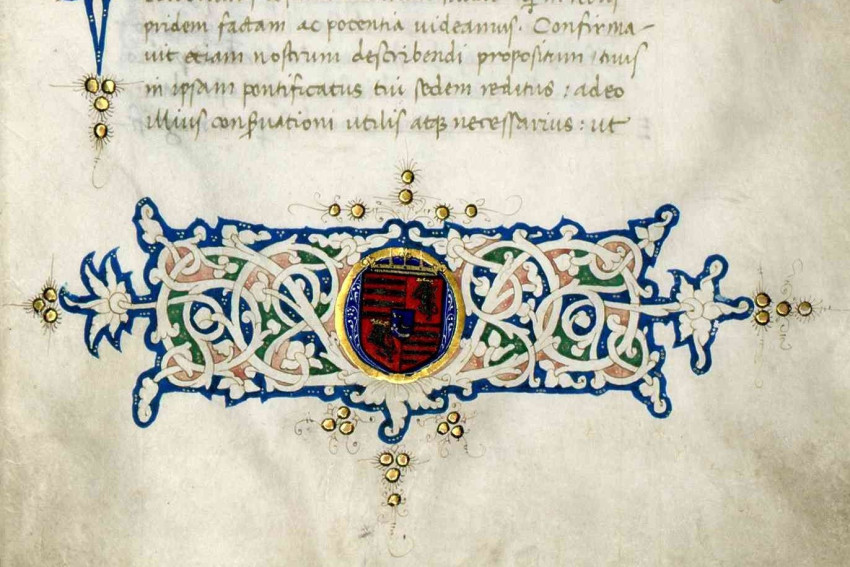 pridem factam ac potentia uideamus. Confirma-
uit etiam nostrum describendi propositum tuus
in ipsam pontificatus tui sedem reditus: adeo
illius conseruationi utilis atq; necessarius: ut